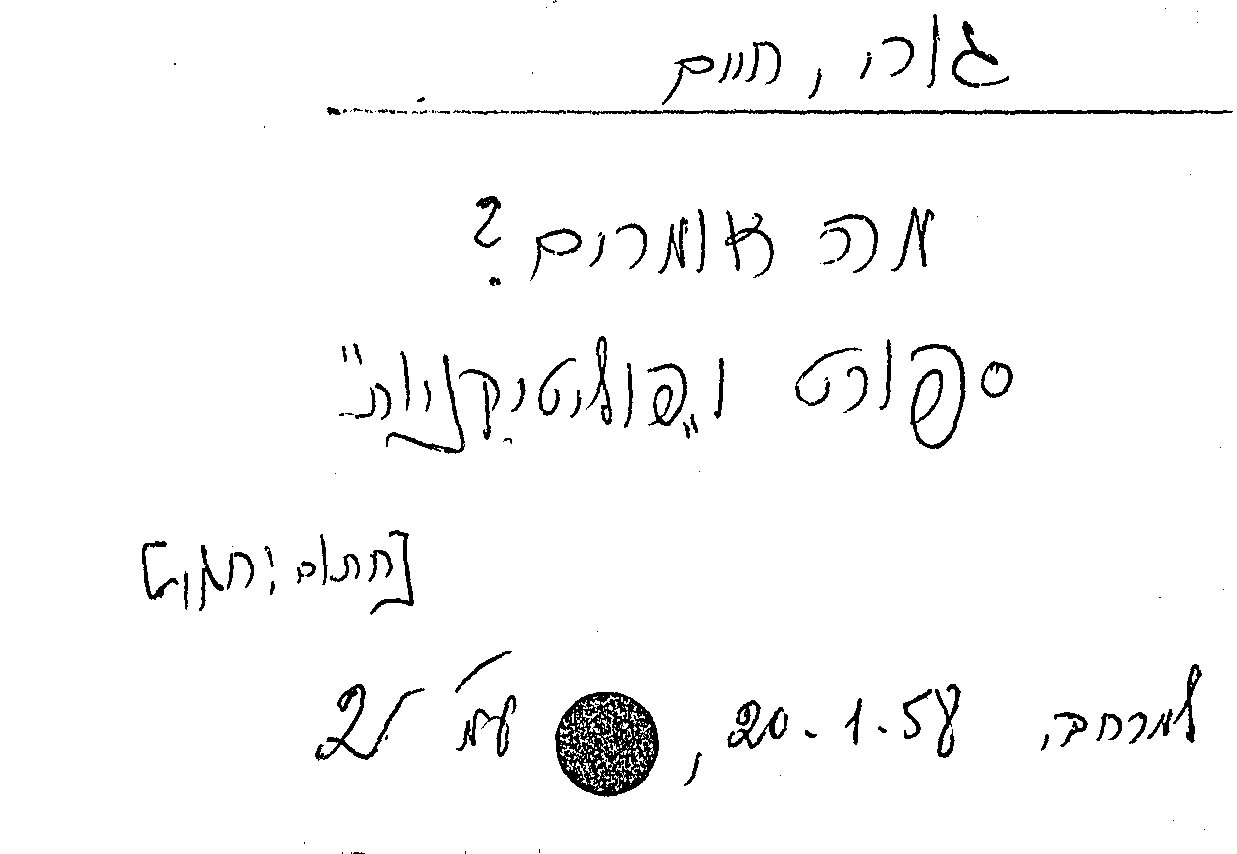 גורי, חיים
מה אומרים?
ספורט ו„פוליטיקניות"
[חתום:
למרחב, 20.1.58, עמ' 2